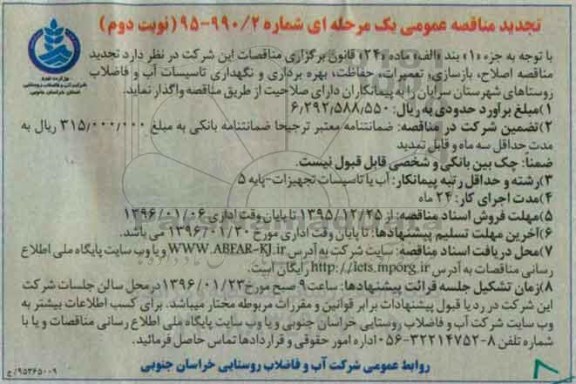 تجدید مناقصه عمومی یک مرحله ای شماره ۹۵-۹۹۰/۲ (نوبت دوم)
با توجه به جزء «۱» بند «الف» ماده «۲۴» قانون برگزاری مناقصات این شرکت در نظر دارد تجدید
مناقصه اصلاح، بازسازی، تعمیرات، حفاظت، بهره برداری و نگهداری تاسیسات آب و فاضلاب
روستاهای شهرستان سرایان را به پیمانکاران دارای صلاحیت از طریق مناقصه واگذار نماید.
۱)مبلغ برآورد حدودی به ریال: ۶,۲۹۲,۵۸۸,۵۵۰
۲)تضمین شرکت در مناقصه: ضمانتنامه معتبر ترجیحا ضمانتنامه بانکی به مبلغ ۳۱۵,۰۰۰,۰۰۰ ریال به
مدت حداقل سه ماه و قابل تمدید
ضمناً: چک بین بانکی و شخصی قابل قبول نیست.
۳)رشته و حداقل رتبه پیمانکار: آب یا تاسیسات تجهیزات-پایه ۵
۴)مدت اجرای کار: ۲۴ ماه
۵)مهلت فروش اسناد مناقصه: از ۱۳۹۵/۱۲/۲۵ تا پایان وقت اداری ۱۳۹۶/۰۱/۰۶
۶)آخرین مهلت تسلیم پیشنهادها: تا پایان وقت اداری مورخ ۱۳۹۶/۰۱/۲۰ می باشد.
۷)محل دریافت اسناد مناقصه: سایت شرکت به آدرس WWW.ABFAR-KJ.ir و یا وب سایت پایگاه ملی اطلاع
رسانی مناقصات به آدرس http://iets.mporg.ir رایگان است.
۸)زمان تشکیل جلسه قرائت پیشنهادها: ساعت ۹ صبح مورخ ۱۳۹۶/۰۱/۲۳ در محل سالن جلسات شرکت
این شرکت در رد یا قبول پیشنهادات برابر قوانین و مقررات مربوطه مختار میباشد. برای کسب اطلاعات بیشتر به
وب سایت شرکت آب و فاضلاب روستایی خراسان جنوبی و یا وب سایت پایگاه ملی اطلاع رسانی مناقصات و یا با
شماره تلفن ۸-۰۵۶۳۲۲۱۴۷۵۲ اداره امور حقوقی و قراردادها تماس حاصل فرمائید.
روابط عمومی شرکت آب و فاضلاب روستایی خراسان جنوبی
وزارت نیرو
شرکت آب و فاضلاب روستایی
استان خراسان جنوبی
۹۵۳۶۵۰۰۹/ح